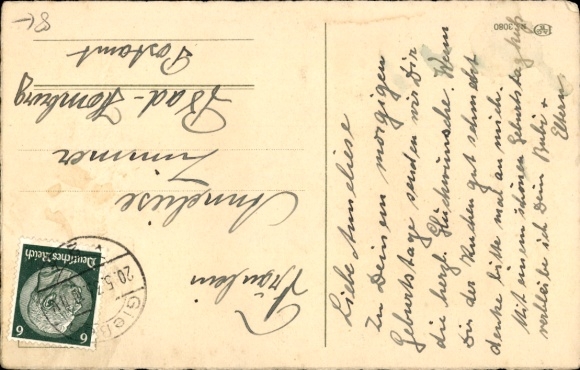 Liebe Anneliese
Zu Deinem morgigen
Geburtstage senden wir Dir
die herzl. Glückwünsche. Wenn
Dir der Kuchen gut schmeckt
denke bitte mal an mich.
Mit einem schönen Geburtstagskuß
verbleibe ich Dein Bubi +
Eltern
Fräulein
Anneliese
Zimmer
Bad-Homburg
Postamt
Deutsches Reich
6 6
20.5.
3080